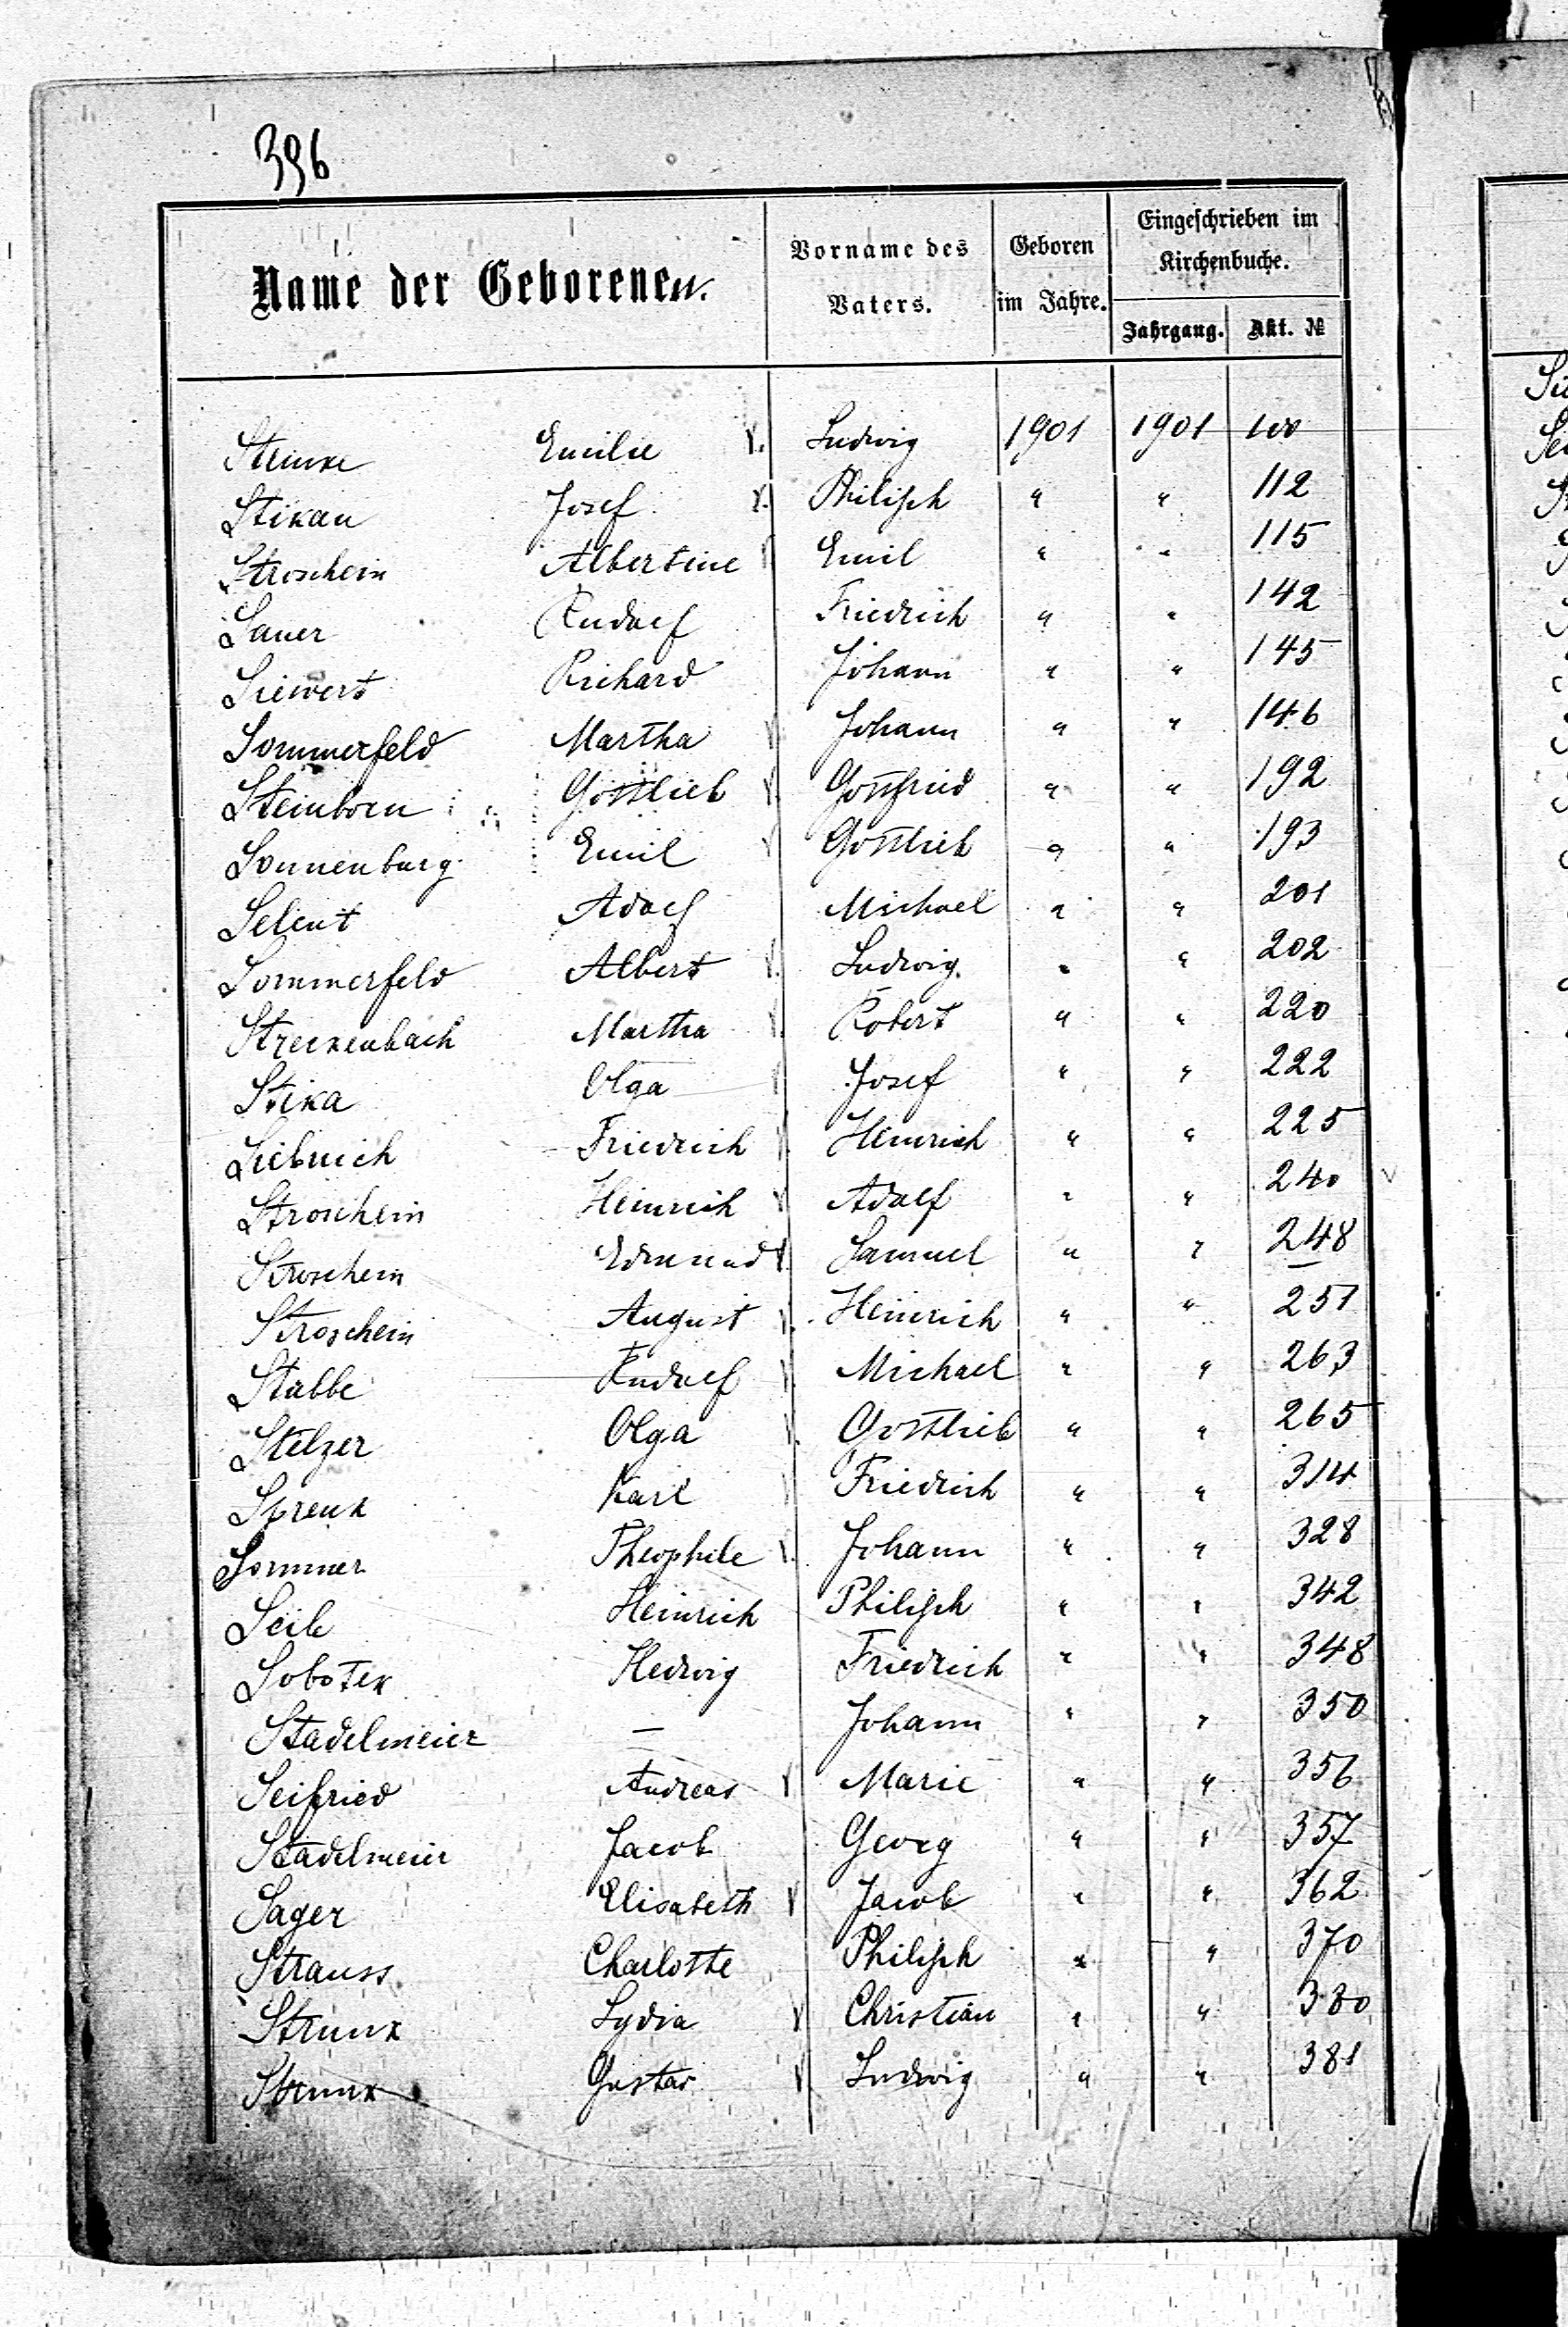 396
Name der Geborenen. Vorname des Vaters. Geboren im Jahre. Eingeschrieben im Kirchenbuche. Jahrgang. Akt. №
Steinke Emilie Ludwig 1901 1901 100
Stikau Josef Philiph " " 112
Stroschein Albertine Emil " " 115
Sauer Rudolf Friedrich " " 142
Siewert Richard Johann " " 145
Sommerfeld Martha Johann " " 146
Steinborn Gottlieb Gottfried " " 192
Sonnenburg Emil Gottlieb " " 193
Selent Adolf Michael " " 201
Sommerfeld Albert Ludwig " " 202
Streckenbach Martha Robert " " 220
Stika Olga Josef " " 222
Siebnich Friedrich Heinrich " " 225
Stroschein Heinrich Adolf " " 240
Stroschein Edmund Samuel " " 248
Stroschein August Heinrich " " 251
Stabbe Rudolf Michael " " 263
Stelzer Olga Gottlieb " " 265
Spreuk Karl Friedrich " " 314
Sommer Theophile Johann " " 328
Seib Heinrich Philiph " " 342
Sobotek Hedwig Friedrich " " 348
Stadelmeier — Johann " " 350
Seifried Andreas Marie " " 356
Stadelmeier Jacob Georg " " 357
Sager Elisabeth Jacob " " 362
Strauss Charlotte Philiph " " 370
Strunk Lydia Christian " " 380
Strunk Gustav Ludwig " " 381